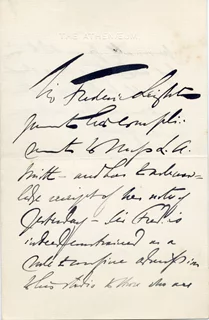 THE ATHENÆUM
Sir Frederic Leighton
presents his compli:
ments to Miss L. A.
Smith – and has to acknow-
ledge receipt of her note of
yesterday – Sir Fred: is
indeed constrained as a
rule to confine admission
to his studio to those who are